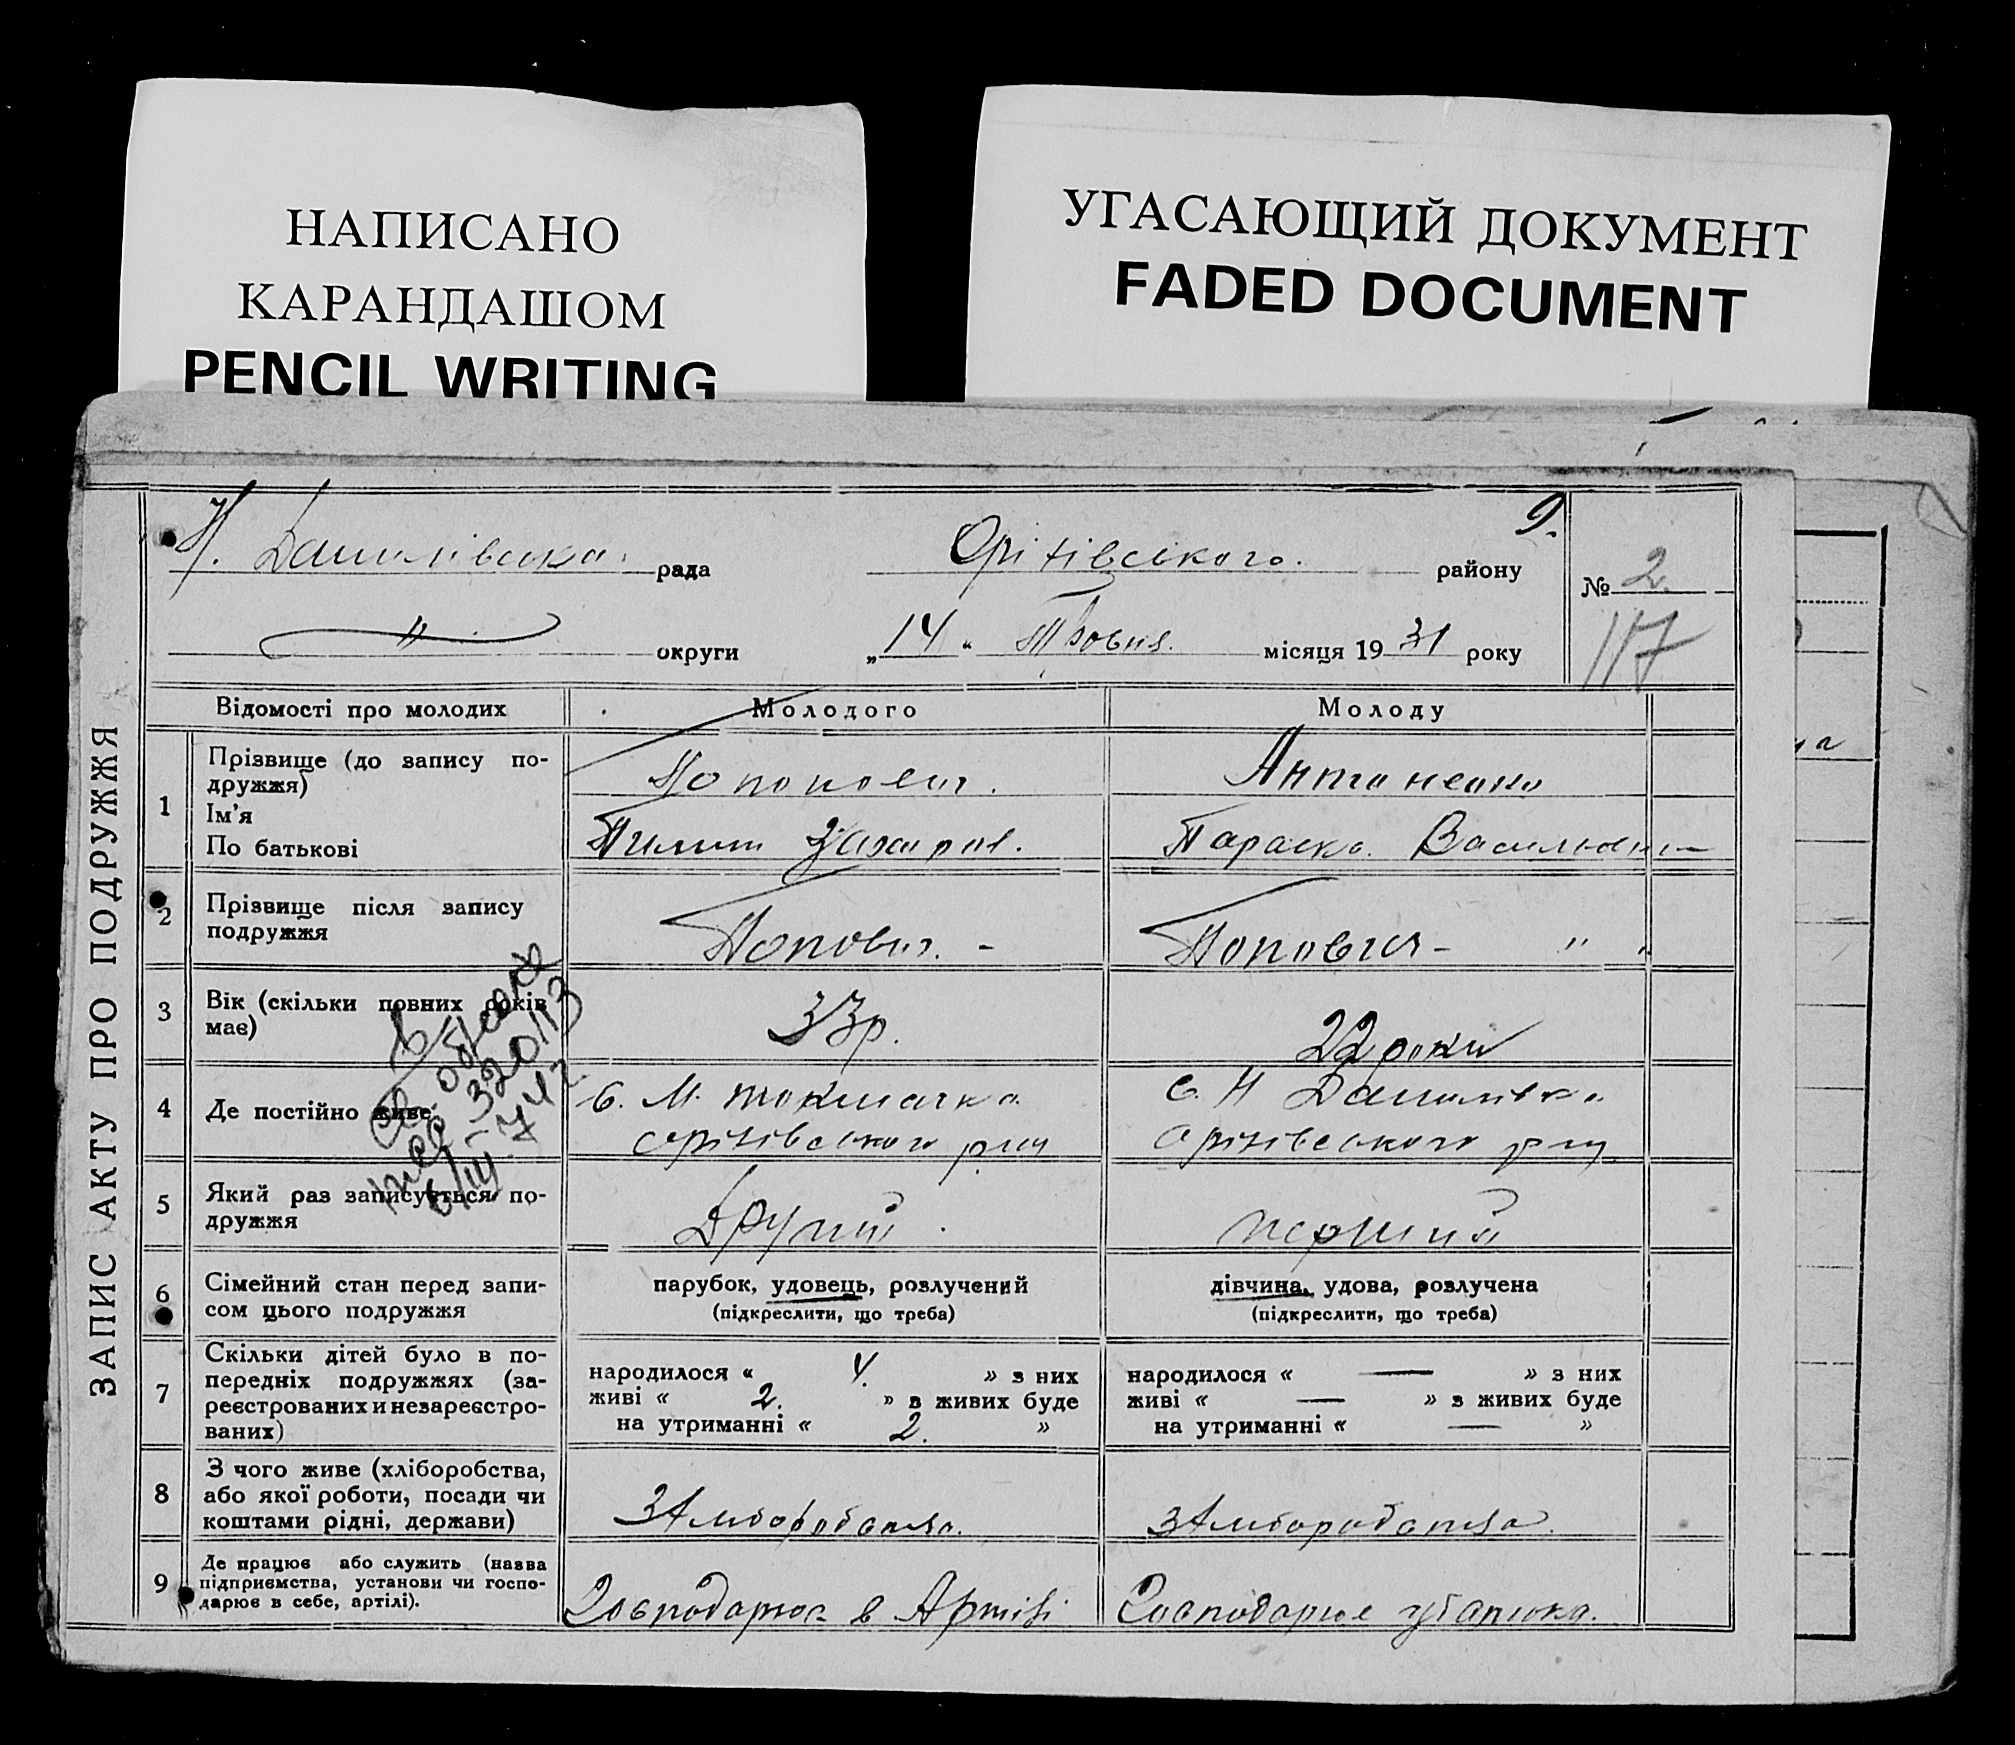 НАПИСАНО
КАРАНДАШОМ
PENCIL WRITING
УГАСАЮЩИЙ ДОКУМЕНТ
FADED DOCUMENT
ЗАПИС АКТУ ПРО ПОДРУЖЖЯ
9.
Н. Данилівська рада Оріхівського району
№ 2
" округи „14“ Травня місяця 1931 року
117
Відомості про молодих Молодого Молоду
1 Прізвище (до запису по-
дружжя)
Ім'я
По батькові
Антоненко
Пилип Захаров.
Параска Васильевна
2 Прізвище після запису
подружжя
Попович. -
Попович - " "
3 Вік (скільки повних років
має)
33р.
22 роки
4 Де постійно живе
с. М. Токмачка
Оріхівського р-ну
с. Н Данилівка
Оріхівського р-ну
320/13
5 Який раз записується по-
дружжя
Другий
перший
6 Сімейний стан перед запи-
сом цього подружжя
парубок, удовець, розлучений
(підкреслити, що треба)
дівчина, удова, розлучена
(підкреслити, що треба)
7 Скільки дітей було в по-
передніх подружжях (за-
реєстрованих и незареєстро-
ваних)
народилося « 4. » з них
живі « 2. » в живих буде
на утриманні « 2. »
народилося « — » з них
живі « — » з живих буде
на утриманні « — »
8 З чого живе (хліборобства,
або якої роботи, посади чи
коштами рідні, держави)
З Хліборобства.
З Хліборобства.
9 Де працює або служить (назва
підприємства, установи чи госпо-
дарює в себе, артілі).
Господарює в Артілі
Господарює у батька.